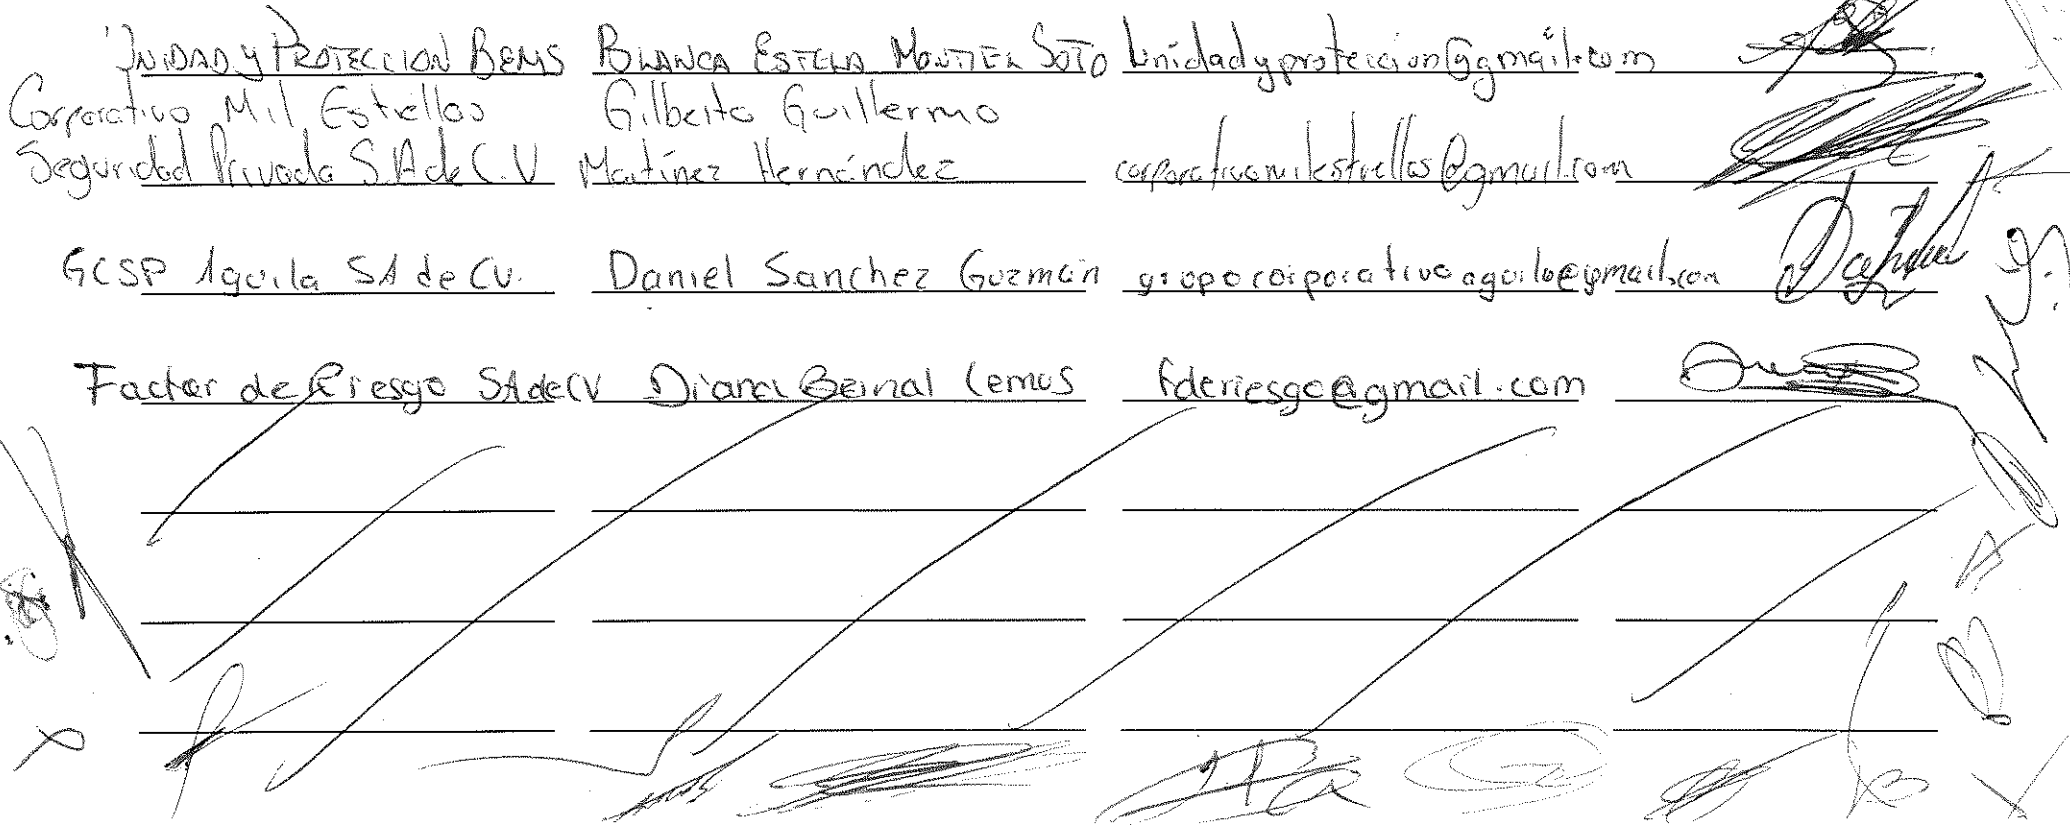 UNIDAD Y PROTECCION BEMS BLANCA ESTELA MONTIEL SOTO unidadyproteccion@gmail.com
Corporativo Mil Estrellas Gilberto Guillermo
Seguridad Privada S.A de C.V Martínez Hernández corporativomilestrellas@gmail.com
GCSP Aguila SA de CV. Daniel Sanchez Guzmán grupocorporativoaguila@gmail.com
Factor de Riesgo SA de CV Diana Bernal Lemus fderiesgo@gmail.com